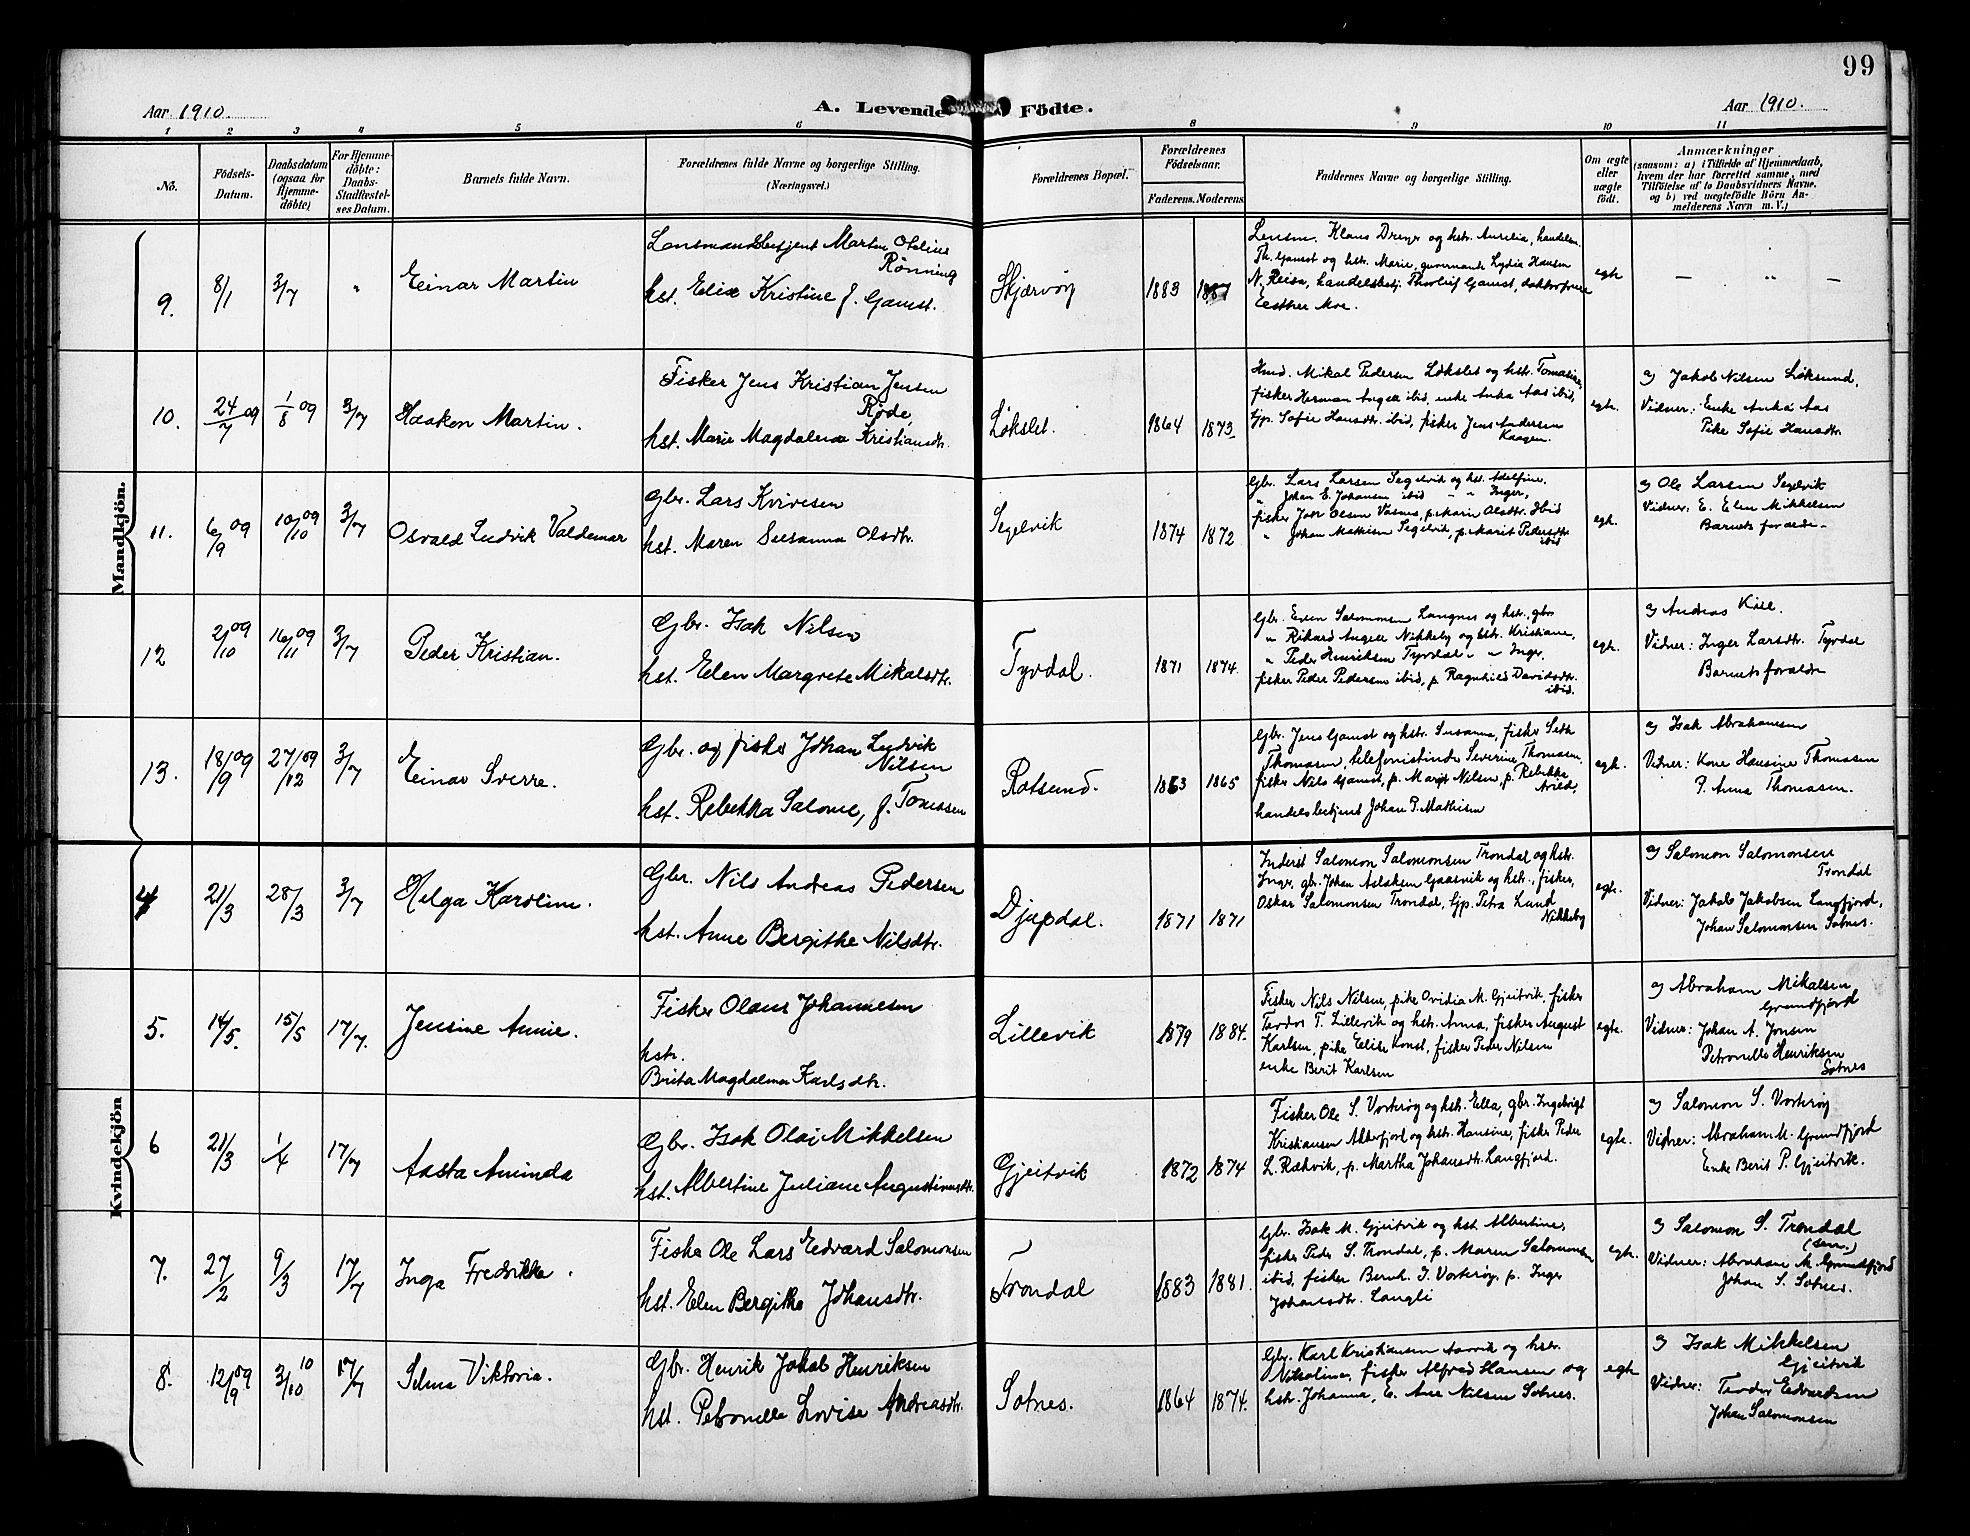 99
Aar 1910.
A. Levende Födte.
Aar 1910.
1 2 3 4 5 6 8 9 10 11
No.
Födsels-Datum.
Daabsdatum (ogsaa for Hjemme-döbte)
For Hjemme-döbte: Daabs-Stadfæstel-ses Datum.
Barnets fulde Navn.
Forældrenes fulde Navne og borgerlige Stilling.
(Næringsvei.)
Forældrenes Bopæl.
Forældrenes Födselsaar.
Faderens. Moderens.
Faddernes Navne og borgerlige Stilling.
Om ægte eller uægte födt.
Anmærkninger
(saasom: a) i Tilfælde af Hjemmedaab,
hvem der har forrettet samme, med
Tilföielse af to Daabsvidners Navne.
og b) ved uægtefödte Börn An-
melderens Navn m. V.)
Mandkjön.
9. 8/1 3/7 " Einar Martin
Lensmandsbetjent Martin Otelius
Rönning
hst. Elise Kristine f. Gamst.
Skjærvöy 1883
Lensm. Klaus Dreyer og hstr. Aurelia, handelsm.
Th. Gamst og hstr. Marie, guvernante Lydia Hansen
N. Reisa, handelsbetj. Thorleif Gamst, doktorfrue
Eesther Moe.
egte — " —
10. 24/7 09 1/8 09 3/7 Haakon Martin.
Fisker Jens Kristian Jensen
Røde,
hst. Marie Magdalena Kristiansdtr.
Løkslet. 1864 1873
Hmd. Mikal Pedersen Løkslet og hstr. Tomasine,
fisker Herman Angell ibid, enke Anka Aas ibid,
Gjp. Sofie Hansdtr. ibid, fisker Jens Andersen
Kaagen.
egte.
a) Jakob Nilsen Løksund,
Vidner: Enke Anka Aas
Pike Sofie Hansdtr.
11. 6/9 09 10/10 09 3/7 Osvald Ludvik Valdemar
Gbr. Lars Kvivesen
hst. Maren Susanna Olsdtr.
Segelvik 1874 1872
Gbr. Lars Larsen Segelvik og hst. Adelfine,
" Johan E. Johansen ibid " " Inger,
fisker Joar Olsen Vasnes, p. Marin Olsdtr. ibid
" Johan Mathisen Segelvik, p. Marit Pedersdtr.
ibid
egte.
a) Ole Larsen Segelvik
Vidner: E. Elen Mikkelsen
Barnets foræl-
12 2/10 09 16/11 09 3/7 Peder Kristian.
Gbr. Isak Nilsen
hst. Elen Margrete Mikalsdtr.
Tyvdal. 1871 1874.
Gbr. Even Salomonsen Langnes og hstr. gbr.
" Rikard Angell Nikkeby og hstr. Kristiane,
" Peder Henriksen Tyvdal " " Inger.
fisker Peder Pedersen ibid, p. Ragnhild Davidsdtr.
ibid.
egte.
a) Andras Kiil.
Vidner: Inger Larsdtr. Tyvdal
Barnets forældre
13. 18/9 09 27/12 09 3/7 Einar Sverre.
Gbr. og fisker Johan Ludvik
Nilsen
hst. Rebekka Salome, f. Tomasen
Rotsund. 1863 1865
Gbr. Jens Gamst og hstr. Susanna, fisker Seth
Thomasen, telefonistinde Severine Thomasen,
fisker Nils Gamst, p. Marit Nilsen, p. Rebekka
Arild,
handelsbetjent Johan P. Mathisen
egte.
a) Isak Abrahamsen
Vidner: Kone Hansine Thomasen
P. Anna Thomasen.
Kvindekjön
4 21/3 28/3 3/7 Helga Karoline.
Gbr. Nils Andreas Pedersen
hst. Anne Bergithe Nilsdtr.
Djupdal. 1871 1871
Inderst Salomon Salomonsen Trondal og hstr.
Inger, gbr. Johan Aslaksen Gaasvik og hstr., fisker,
Oskar Salomonsen Trondal, Gjp. Petra Lund
Nikkeby
egte.
a) Salomon Salomonsen
Trondal
Vidner: Jakob Jakobsen Langfjord,
Johan Salomonsen Sotnes.
5. 14/5. 15/5 17/7. Jensine Annie.
Fisker Olaus Johannesen
hstr.
Brita Magdalena Karlsdtr.
Lillevik 1879 1884.
Fisker Nils Nilsen, pike Ovidia M. Gjeitvik, fisker
Teodor T. Lillevik og hstr. Anna, fisker August
Karlsen, pike Elise Konst, fisker Peder Nilsen
enke Berit Karlsen
egte.
a) Abraham Mikalsen
Grundfjord
Vidner: Johan A. Jonsen
Petronelle Henriksen
Sotnes
6 21/3 1/4 17/7 Aasta Aminda
Gbr. Isak Olai Mikkelsen
hst. Albertine Juliane Augustinusdtr.
Gjeitvik 1872 1874
Fisker Ole S. Vorterøy og hstr. Ella, gbr. Ingebrigt
Kristiansen Alderfjord og hstr. Hansine, fisker Peder
L. Rækvik, p. Martha Johansdtr. Langfjord.
egte.
a) Salomon S. Vorterøy
Vidner: Abraham M. Grundfjord
Enke Berit P. Gjeitvik.
7. 27/2 9/3 17/7 Inga Fredrikke.
Fisker Ole Lars Edvard Salomonsen
hst. Elen Bergitha Johansdtr.
Trondal 1883 1881.
Gbr. Isak M. Gjeitvik og hst. Albertine,
fisker Peder S. Trondal, p. Maren Salomonsen
ibid, fisker Bernh. I. Vorterøy, p. Inger
Johansdtr. Langli
egte.
a) Salomon S. Trondal
(sen.)
Vidner: Abraham M. Grundfjord
Johan S. Sotnes.
8. 12/9 09 3/10 10 17/7 Selma Viktoria.
Gbr. Henrik Jakob Henriksen
hst. Petronelle Lovise Andreasdtr.
Sotnes. 1864 1874.
Gbr. Karl Kristiansen Aarvik og hstr.
Nikoline, fisker Alfred Hansen og
hstr. Johanna, E. Ane Nilsen Sotnes.
egte
a) Isak Mikkelsen
Gjeitvik
Vidner: Teodor Edvardsen
Johan Salomonsen